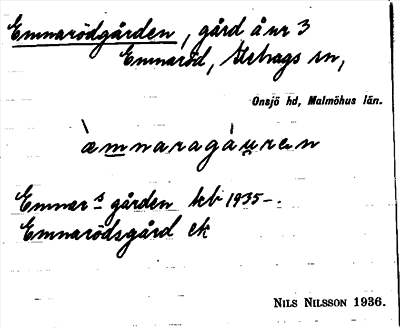 Emnarödgården, gård å nr 3
Emnaröd, Stehags sn,
Onsjö hd, Malmöhus län.
æ̀mnaragáuren
Emner s gården kb 1935-.
Emnarödsgård ek
NILS NILSSON 1936.